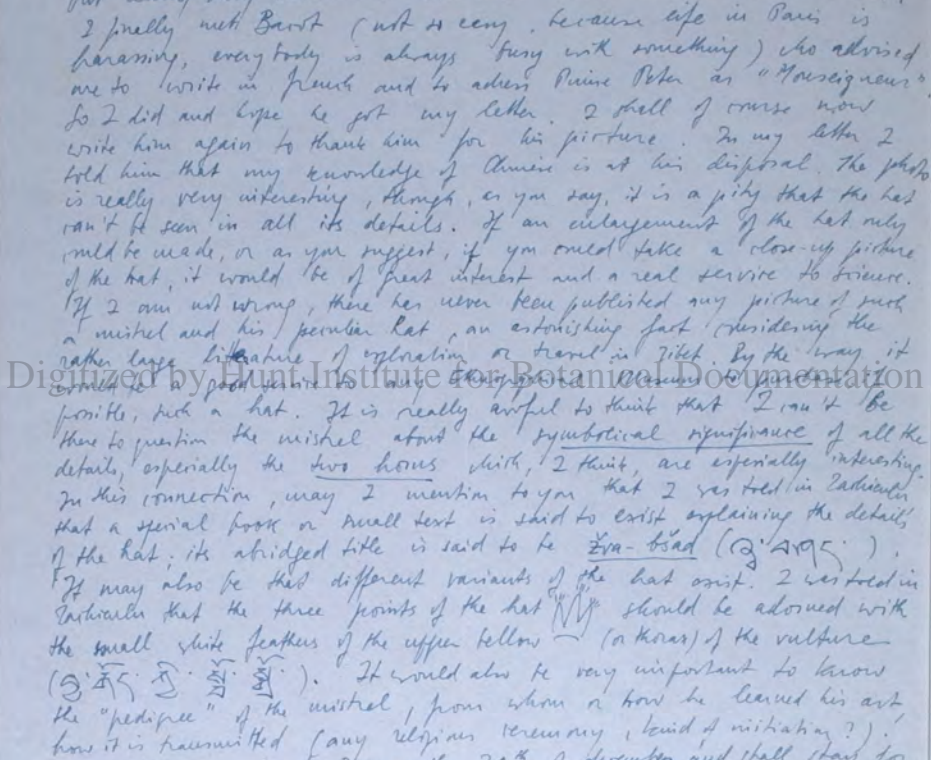 I finally met Bacot (not so easy, because life in Paris is
harassing, everybody is always busy with something) who advised
me to write in french and to adress Prince Peter as "Monseigneur".
So I did and hope he got my letter. I shall of course now
write him again to thank him for his picture. In my letter I
told him that my knowledge of Chinese is at his disposal. The photo
is really very interesting, though, as you say, it is a pity that the hat
can't be seen in all its details. If an enlargement of the hat only
could be made, or as you suggest, if you could take a close-up picture
of the hat, it would be of great interest and a real service to science.
If I am not wrong, there has never been published any picture of such
a mistrel and his peculiar hat, an astonishing fact considering the
rather large literature of exploration or travel in Tibet. By the way, it
Digitized by Hunt Institute for Botanical Documentation
would be a good service to any museum to purchase if
possible, such a hat. It is really awful to think that I can't be
there to question the mistrel about the symbolical significance of all the
details, especially the two horns which, I think, are especially interesting.
In this connection, may I mention to you that I was told in Tachienlu
that a special book or small text is said to exist explaining the details
of the hat; its abridged title is said to be žva-bšad (ཞྭ་བཤད་).
It may also be that different variants of the hat exist. I was told in
Tachienlu that the three points of the hat should be adorned with
the small white feathers of the upper (or thorax) of the vulture
It would also be very important to know
the "pedigree" of the mistrel, from whom or how he learned his art,
how it is transmitted (any religious ceremony, kind of initiation?).
and shall stay for